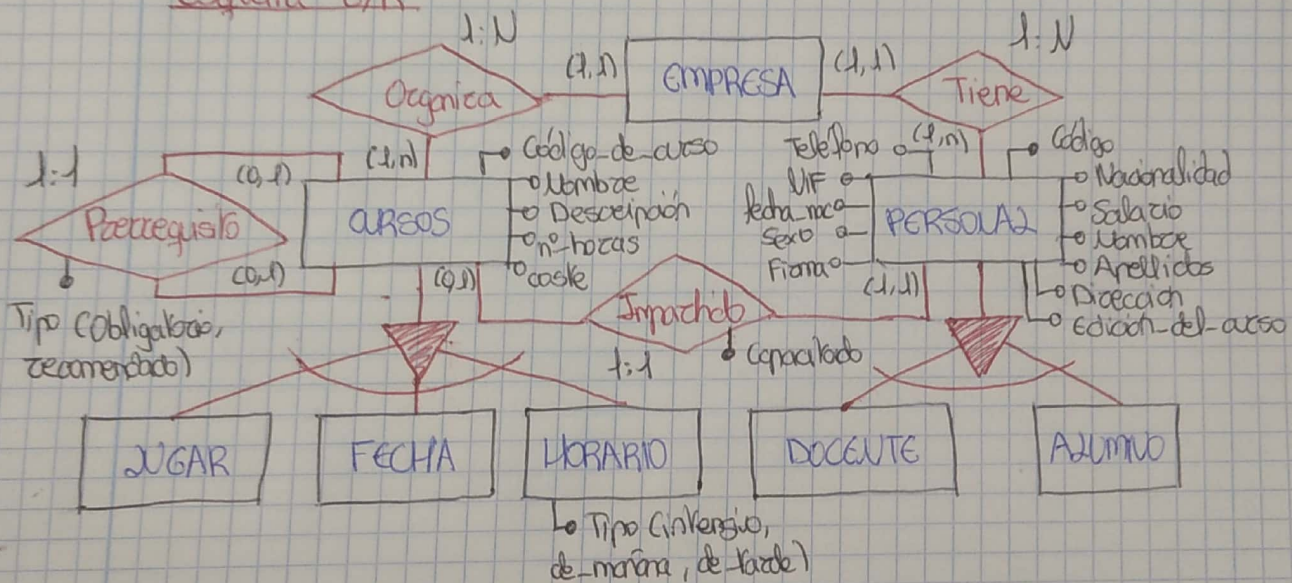 Esquema E/R
1:N
1:N
Organiza
(1,1)
EMPRESA
(1,1)
Tiene
1:1
(0,1)
(1,n)
Código_de_curso
Teléfono
(1,n)
Código
Prerrequisito
CURSOS
Nombre
Descripción
nº horas
coste
NIF
fecha_nac
Sexo
Firma
PERSONAL
Nacionalidad
Salario
Nombre
Apellidos
Dirección
Edición_del_curso
(0,1)
(0,1)
Impartido
(1,1)
Tipo (obligatorio,
recomendado)
1:1
Capacitado
LUGAR
FECHA
HORARIO
DOCENTE
ALUMNO
Tipo (intensivo,
de_mañana, de_tarde)